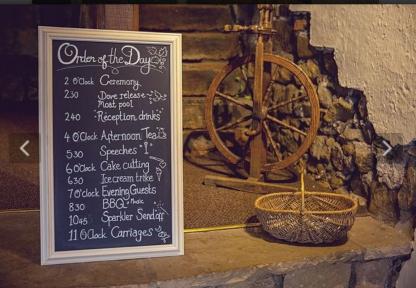 Order of the Day
2 O'Clock Ceremony
230 Dove release
Moat pool
240 Reception, drinks
4 O'Clock Afternoon Tea
530 Speeches
6 O'Clock Cake cutting
630 Ice cream trike
7 O'Clock Evening Guests
830 BBQ & Music
1045 Sparkler Send off
11 O'Clock Carriages